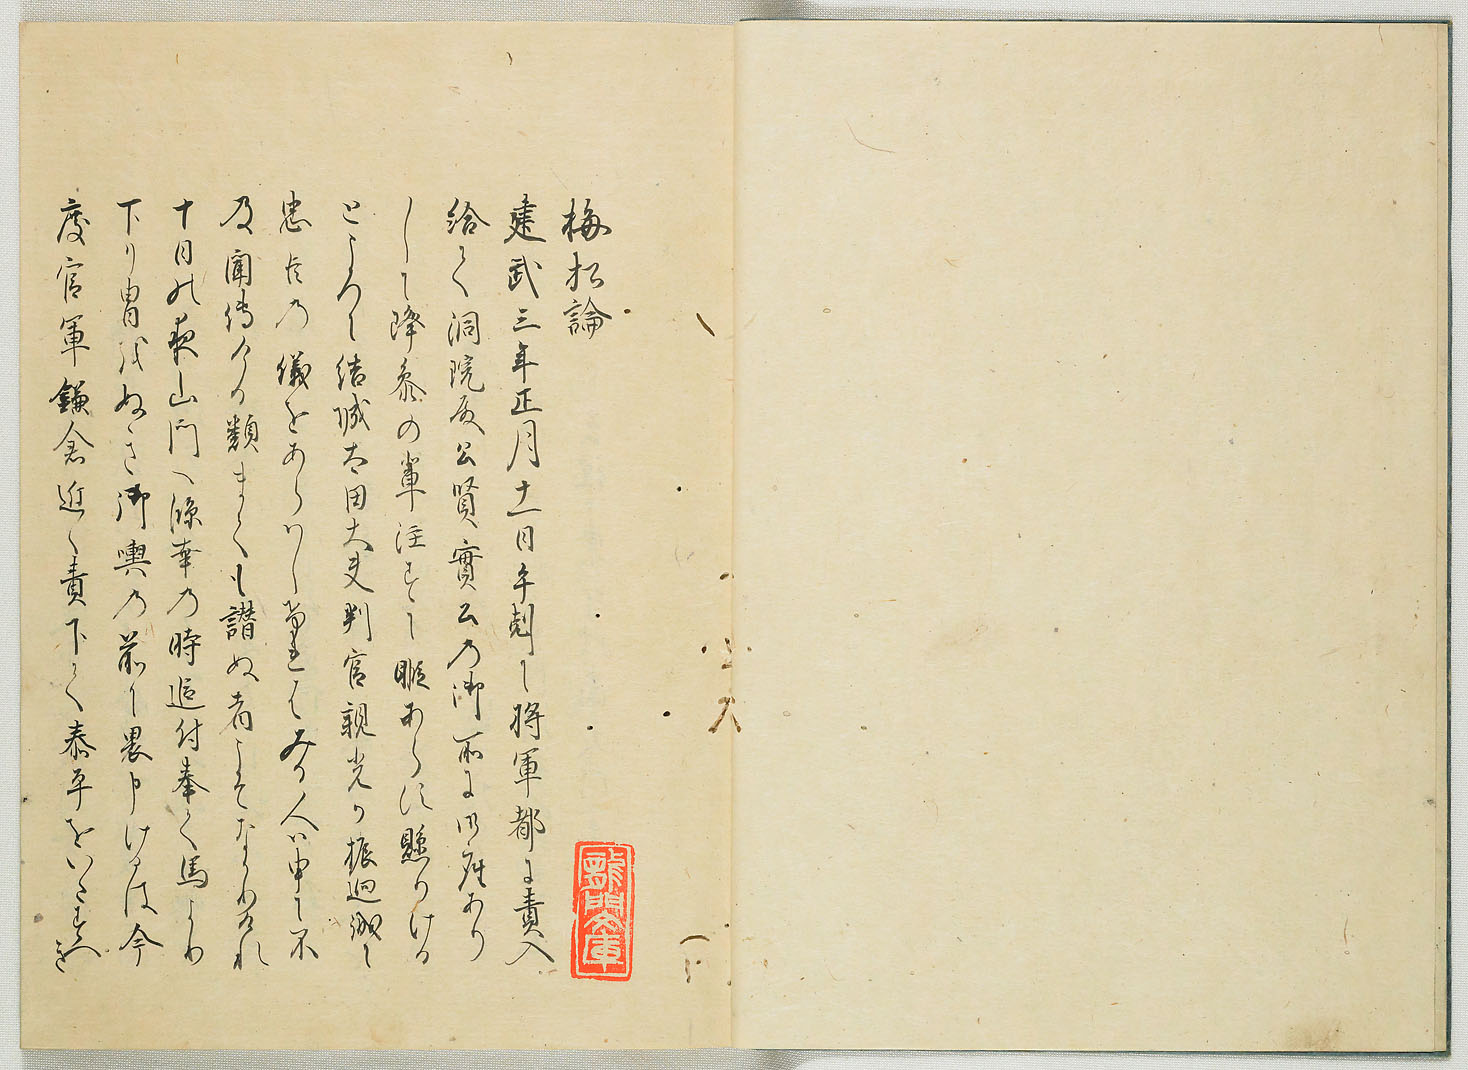 梅松論
建武三年正月十一日午剋に将軍都に責入
給て洞院殿公賢實公の御所に御座あり
しに降参の輩注するに暇あらす懸りける
ところに結城太田大夫判官親光か振廻誠に
忠臣の儀をあらハしけれはみる人ハ申に不
及聞傳ける類まても讃ぬ者こそなかりけれ
十日の夜山門へ臨幸の時追付奉て馬より
下り冑をぬき御輿の前に畏申けるは今
度官軍鎌倉近く責下て泰平をいたすへき
龍門文庫